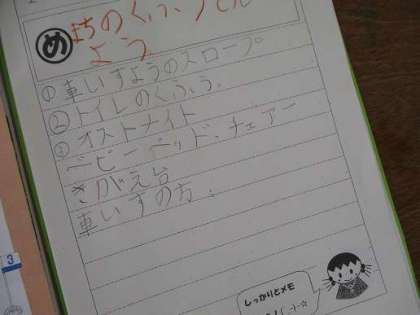 め
まちのくふう
よう
① 車いすようのスロープ
② トイレのくふう。
④ オストメイト
ベビーベッド、チェアー
きがえ台
車いすの方。
3
しっかりとメモ